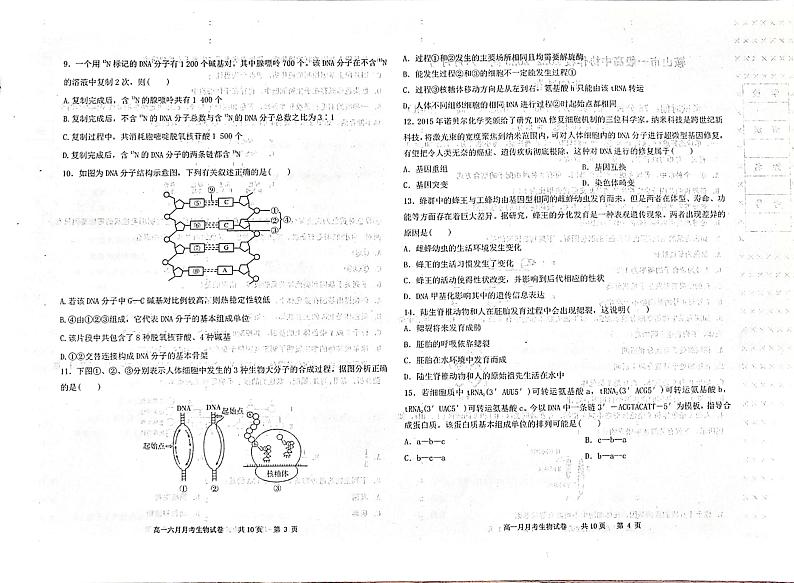 9．一个用¹⁵N标记的DNA分子有1 200个碱基对，其中腺嘌呤700个。该DNA分子在不含¹⁵N
的溶液中复制2次，则(　　)
A.复制完成后，含¹⁵N的腺嘌呤共有1 400个
B.复制完成后，不含¹⁵N的DNA分子总数与含¹⁵N的DNA分子总数之比为3∶1
C.复制过程中，共消耗胞嘧啶脱氧核苷酸1 500个
D.复制完成后，含¹⁵N的DNA分子的两条链都含¹⁵N
10．如图为DNA分子结构示意图，下列有关叙述正确的是(　　)
⑨
⑤ C ① ② ④ ③
G
A
A.若该DNA分子中G—C碱基对比例较高，则热稳定性较低
B.④由①②③组成，它代表DNA分子的基本组成单位
C.该片段中共包含了8种脱氧核苷酸、4种碱基
D.①②交替连接构成DNA分子的基本骨架
11．下图①、②、③分别表示人体细胞中发生的3种生物大分子的合成过程，据图分析正确
的是(　　)
DNA DNA 起始点
起始点
核糖体
① ② ③
高一六月月考生物试卷　共10页　第 3 页
A．过程①和②发生的主要场所相同且均需要解旋酶
B．能发生过程②和③的细胞不一定能发生过程①
C．过程③核糖体移动方向是从左到右，氨基酸h只能由该tRNA转运
D．人体不同组织细胞的相同DNA进行过程②时起始点都相同
12．2015年诺贝尔化学奖颁给了研究DNA修复细胞机制的三位科学家，纳米科技是跨世纪新
科技，将激光束的宽度聚焦到纳米范围内，可对人体细胞内的DNA分子进行超微型基因修复，
有望把令人类无奈的癌症、遗传疾病彻底根除，这种对DNA进行的修复属于(　　)
A．基因重组　B．基因互换
C．基因突变　D．染色体畸变
13．蜂群中的蜂王与工蜂均由基因型相同的雌蜂幼虫发育而来，但是两者在体型、寿命、功
能等方面存在着巨大差异。据研究，蜂王的分化发育是一种表观遗传现象。两者出现差异的
原因是(　　)
A．雌蜂幼虫的生活环境发生变化
B．蜂王的生活习惯发生了变化
C．蜂王的活动使得性状改变，并影响到后代相应的性状
D．DNA甲基化影响其中的遗传信息表达
14．陆生脊椎动物和人在胚胎发育过程中会出现鳃裂，这说明(　　)
A．鳃裂将来发育成肺
B．胚胎的呼吸依靠鳃裂
C．胚胎在水环境中发育而成
D．陆生脊椎动物和人的原始祖先生活在水中
15．若细胞质中tRNA₁(3′AUU5′)可转运氨基酸a，tRNA₂(3′ACG5′)可转运氨基酸b，
tRNA₃(3′UAC5′)可转运氨基酸c。今以DNA中一条链3′－ACGTACATT－5′为模板，指导合
成蛋白质。该蛋白质基本组成单位的排列可能是(　　)
A．a—b—c　B．c—b—a
C．b—c—a　D．b—a—c
高一月月考生物试卷　共10页　第 4 页